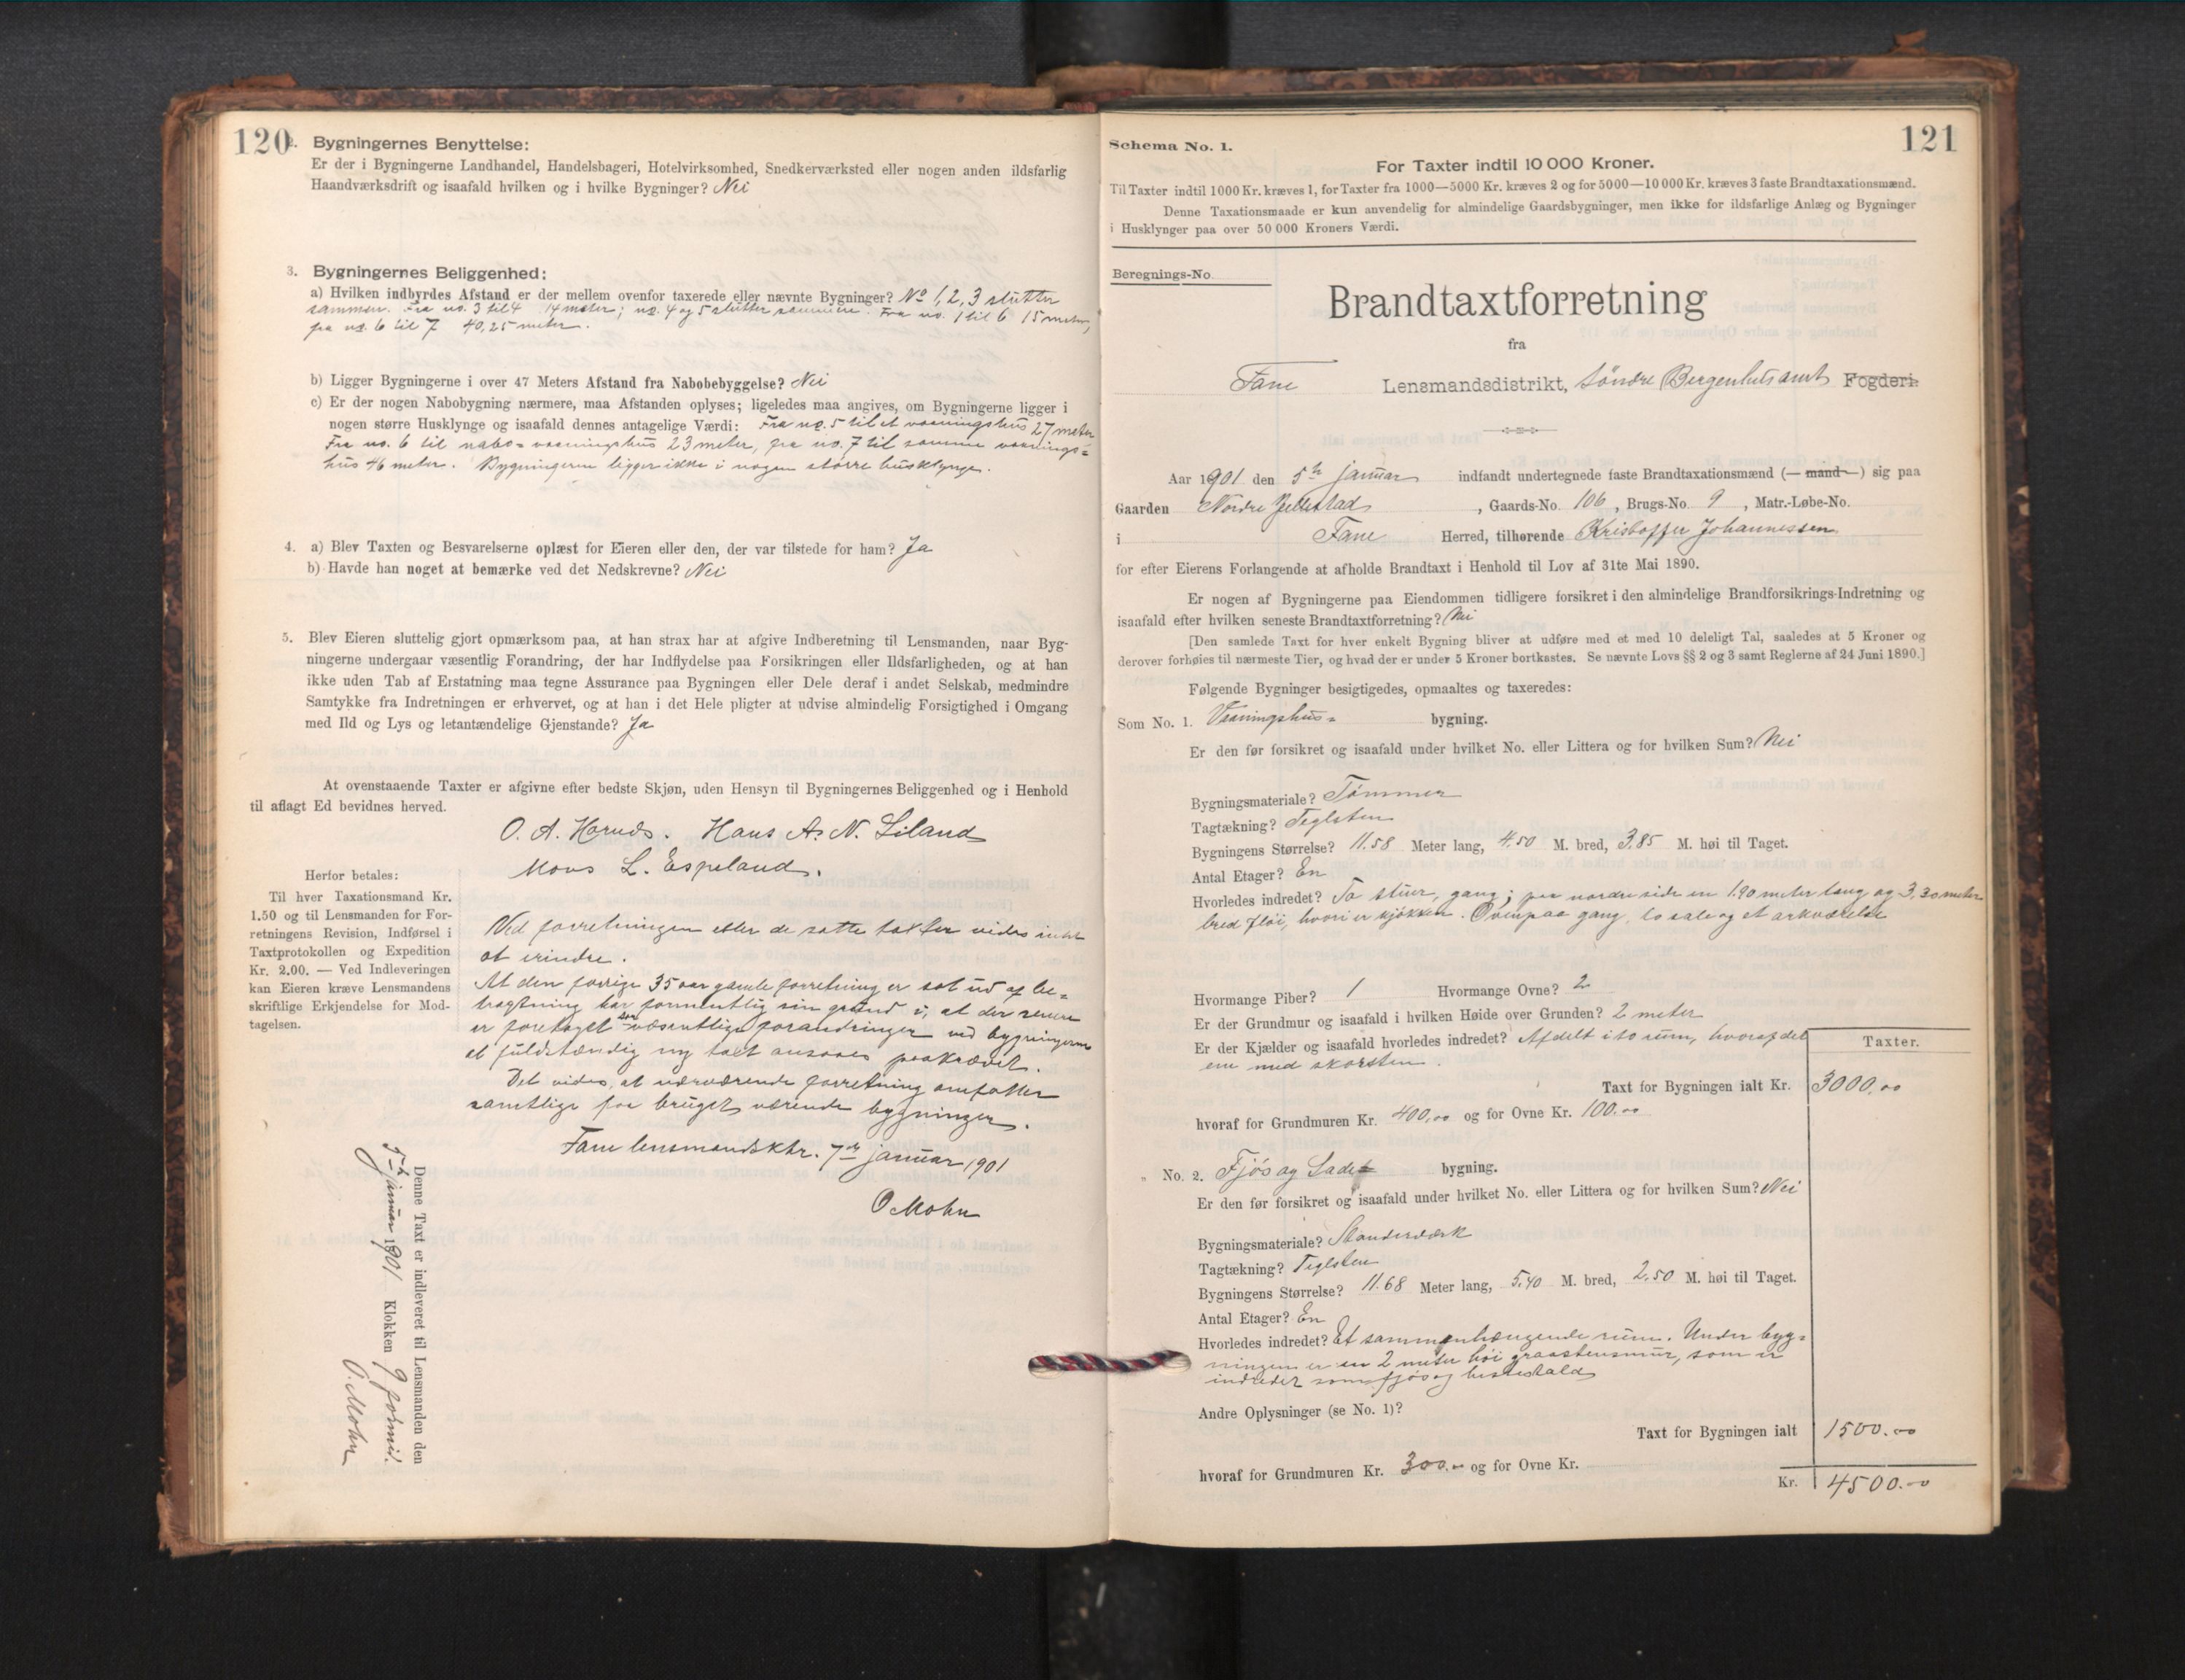 120
2. Bygningernes Benyttelse:
Er der i Bygningerne Landhandel, Handelsbageri, Hotelvirksomhed, Snedkerværksted eller nogen anden ildsfarlig
Haandværksdrift og isaafald hvilken og i hvilke Bygninger? Nei
3. Bygningernes Beliggenhed:
a) Hvilken indbyrdes Afstand er der mellem ovenfor taxerede eller nævnte Bygninger? No 1, 2, 3 slutter
sammen. Fra no. 3 til 4 14 meter; no. 4 og 5 slutter sammen. Fra no. 1 til 6 15 meter,
fra no. 6 til 7 40,25 meter.
b) Ligger Bygningerne i over 47 Meters Afstand fra Nabobebyggelse? Nei
c) Er der nogen Nabobygning nærmere, maa Afstanden oplyses; ligeledes maa angives, om Bygningerne ligger i
nogen større Husklynge og isaafald dennes antagelige Værdi: Fra no. 5 til et vaaningshus 27 meter
Fra no. 6 til nabo=vaaningshus 23 meter, fra no. 7 til samme vaanings=
hus 46 meter. Bygningerne ligger ikke i nogen större husklynge.
4. a) Blev Taxten og Besvarelserne oplæst for Eieren eller den, der var tilstede for ham? Ja
b) Havde han noget at bemærke ved det Nedskrevne? Nei
5. Blev Eieren sluttelig gjort opmærksom paa, at han strax har at afgive Indberetning til Lensmanden, naar Byg-
ningerne undergaar væsentlig Forandring, der har Indflydelse paa Forsikringen eller Ildsfarligheden, og at han
ikke uden Tab af Erstatning maa tegne Assurance paa Bygningen eller Dele deraf i andet Selskab, medmindre
Samtykke fra Indretningen er erhvervet, og at han i det Hele pligter at udvise almindelig Forsigtighed i Omgang
med Ild og Lys og letantændelige Gjenstande? Ja
At ovenstaaende Taxter er afgivne efter bedste Skjøn, uden Hensyn til Bygningernes Beliggenhed og i Henhold
til aflagt Ed bevidnes herved.
O. A. Hans A. N. Liland
Mons L. Espeland.
Herfor betales:
Til hver Taxationsmand Kr.
1.50 og til Lensmanden for For-
retningens Revision, Indførsel i
Taxtprotokollen og Expedition
Kr. 2.00. — Ved Indleveringen
kan Eieren kræve Lensmandens
skriftlige Erkjendelse for Mod-
tagelsen.
Ved forretningen eller de satte takster vides intet
at erindre.
At den forrige 35 aar gamle forretning er sat ud af be=
tragtning har formentlig sin grund i, at der senere
er foretaget saa væsentlige forandringer ved bygningerne
at fuldstændig ny taxt ansaaes paakrævet.
Det vides, at nærværende forretning omfatter
samtlige paa bruget værende bygninger.
Fane lensmandsktr. 7de januar 1901
O Mohn
Denne Taxt er indleveret til Lensmanden den
5te januar 1901 Klokken 9 formid.
O. Mohn
121
Schema No. 1.
For Taxter indtil 10 000 Kroner.
Til Taxter indtil 1000 Kr. kræves 1, for Taxter fra 1000—5000 Kr. kræves 2 og for 5000—10 000 Kr. kræves 3 faste Brandtaxationsmænd.
Denne Taxationsmaade er kun anvendelig for almindelige Gaardsbygninger, men ikke for ildsfarlige Anlæg og Bygninger
i Husklynger paa over 50 000 Kroners Værdi.
Beregnings-No.
Brandtaxtforretning
fra
Fane Lensmandsdistrikt, Söndre Bergenhus amt Fogderi.
Aar 1901 den 5te januar indfandt undertegnede faste Brandtaxationsmænd (— mand —) sig paa
Gaarden Nordre Jellestad, Gaards-No. 106, Brugs-No. 9, Matr.-Løbe-No.
i Fane Herred, tilhørende Kristoffer Johannessen
for efter Eierens Forlangende at afholde Brandtaxt i Henhold til Lov af 31te Mai 1890.
Er nogen af Bygningerne paa Eiendommen tidligere forsikret i den almindelige Brandforsikrings-Indretning og
isaafald efter hvilken seneste Brandtaxtforretning? Nei
[Den samlede Taxt for hver enkelt Bygning bliver at udføre med et med 10 deleligt Tal, saaledes at 5 Kroner og
derover forhøies til nærmeste Tier, og hvad der er under 5 Kroner bortkastes. Se nævnte Lovs §§ 2 og 3 samt Reglerne af 24 Juni 1890.]
Følgende Bygninger besigtigedes, opmaaltes og taxeredes:
Som No. 1. Vaaningshus= bygning.
Er den før forsikret og isaafald under hvilket No. eller Littera og for hvilken Sum? Nei
Bygningsmateriale? Tömmer
Tagtækning? Teglsten
Bygningens Størrelse? 11.58 Meter lang, 4.50 M. bred, 3.85 M. høi til Taget.
Antal Etager? En
Hvorledes indredet? To stuer, gang; paa nordre side en 1.90 meter lang og 3,30 meter
bred flöi, hvori er kjökken. Ovenpaa gang, to sale og et arkværelse
Hvormange Piber? 1 Hvormange Ovne? 2
Er der Grundmur og isaafald i hvilken Høide over Grunden? 2 meter
Er der Kjælder og isaafald hvorledes indredet? Afdelt i to rum, hvoraf det
ene med skorsten.
Taxter.
Taxt for Bygningen ialt Kr. 3000,00
hvoraf for Grundmuren Kr. 400,00 og for Ovne Kr. 100.00
No. 2. Fjös og Lade bygning.
Er den før forsikret og isaafald under hvilket No. eller Littera og for hvilken Sum? Nei
Bygningsmateriale? Standerværk
Tagtækning? Teglsten
Bygningens Størrelse? 11.68 Meter lang, 5.40 M. bred, 2.50 M. høi til Taget.
Antal Etager? En
Hvorledes indredet? Et sammenhængende rum. Under byg=
ningen er en 2 meter höi graastensmur, som er
indredet som fjös og hestestald
Andre Oplysninger (se No. 1)?
Taxt for Bygningen ialt 1500.00
hvoraf for Grundmuren Kr. 300.00 og for Ovne Kr.
Kr. 4500.00